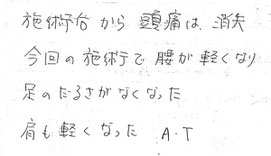 施術后から頭痛は消失
今回の施術で腰が軽くなり
足のだるさがなくなった
肩も軽くなった A.T